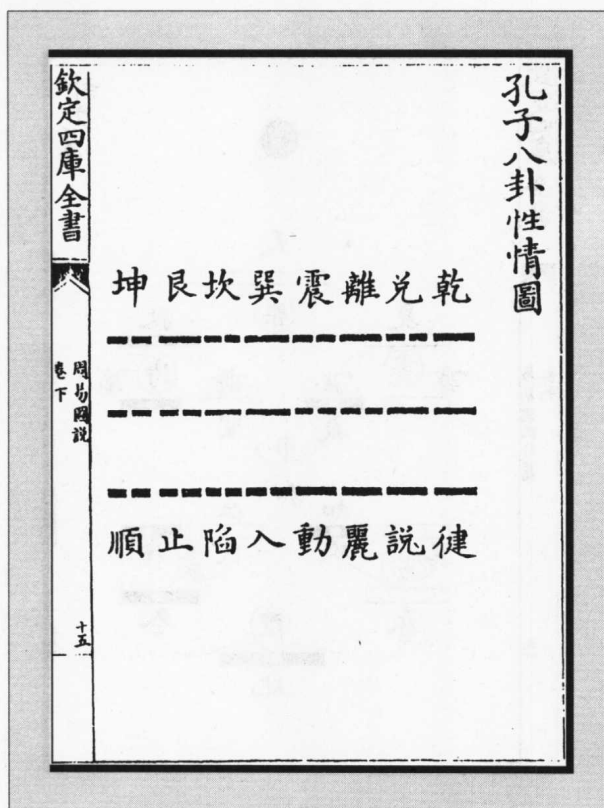 孔子八卦性情圖
乾兌離震巽坎艮坤
徤說麗動入陷止順
欽定四庫全書
周易圖說
卷下
十五